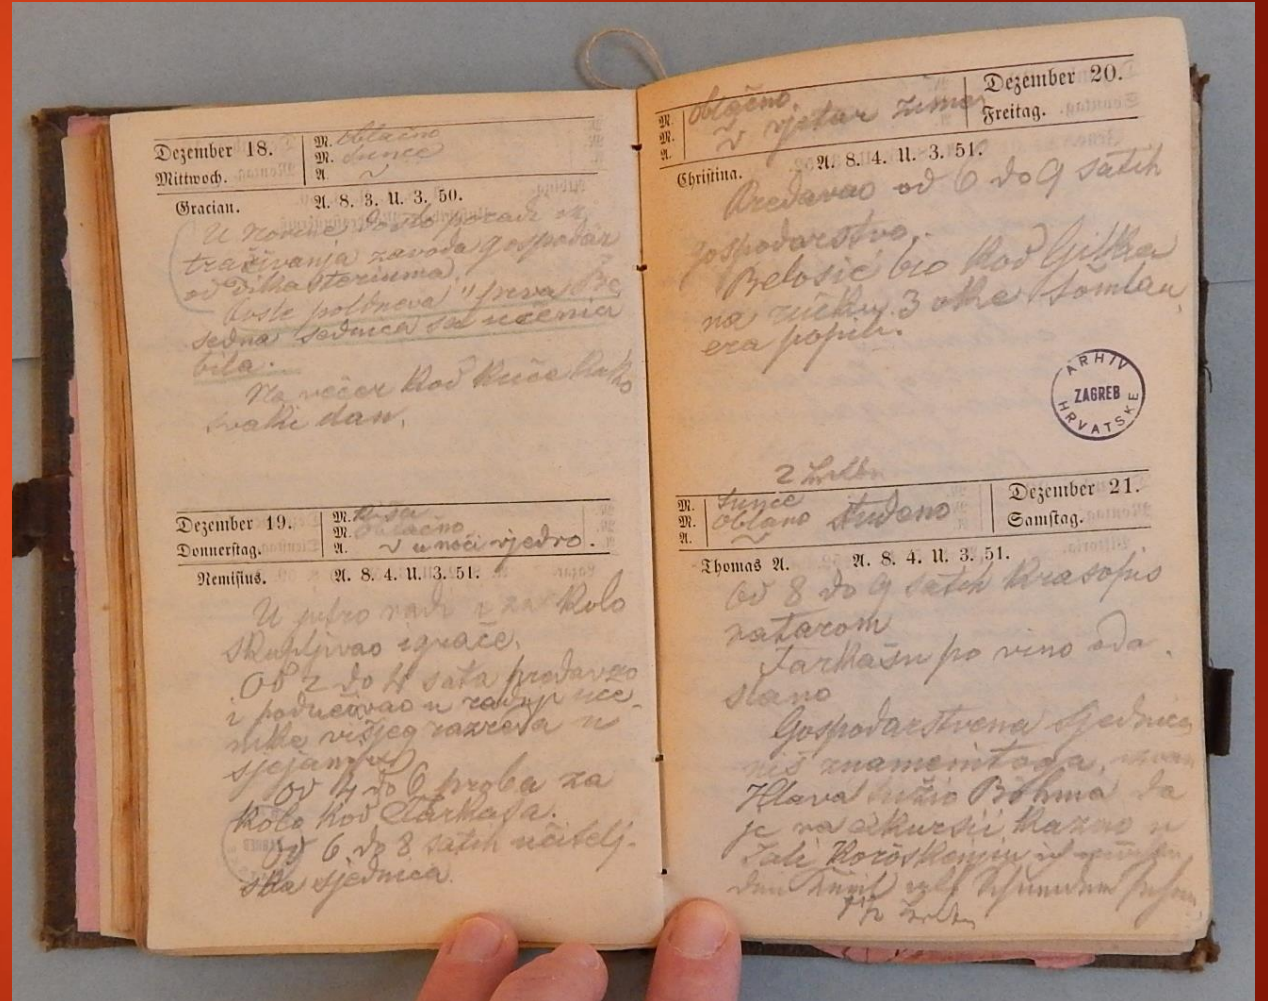 Dezember 18.
Mittwoch.
M. oblačno
M. sunce
A.
Gracian.
A. 8. 3. U. 3. 50.
U novine došlo poradi iz
traživanja zavoda gospodar
od
Posle poldneva "prva Be
sedna sednica sa učenici
bila.
Na večer kod kuće kako
svaki dan.
Dezember 19.
Donnerstag.
M. Kiša
M. oblačno
A. u noći vjedro.
Remisius.
A. 8. 4. U. 3. 51.
U jutro radi za kolo
skupljivao igrače.
Od 2 do 4 sata predavao
i podučavao u uče-
nike višjeg razreda u
sjejanju
od 4 do 6 proba za
kolo kod Farkaša.
Od 6 do 8 satih učitelj-
ska sjednica.
M. oblačno.
M. vjetar zima
A.
Dezember 20.
Freitag.
Christina.
A. 8. 4. U. 3. 51.
Predavao od 6 do 9 satih
gospodarstvo.
Belosić bio kod
na 3 oke Šomlau
era popili.
ARHIV
HRVATSKE
ZAGREB
2
M. Sunce
M. oblano studeno
A.
Dezember 21.
Samstag.
Thomas A.
A. 8. 4. U. 3. 51.
Od 8 do 9 satih krasopis
natarom
Farkašu po vino oda
slano
Gospodarstvena sjednica
niš znamenitoga,
Hlava tužio Böhma da
je na ekursii kazao u